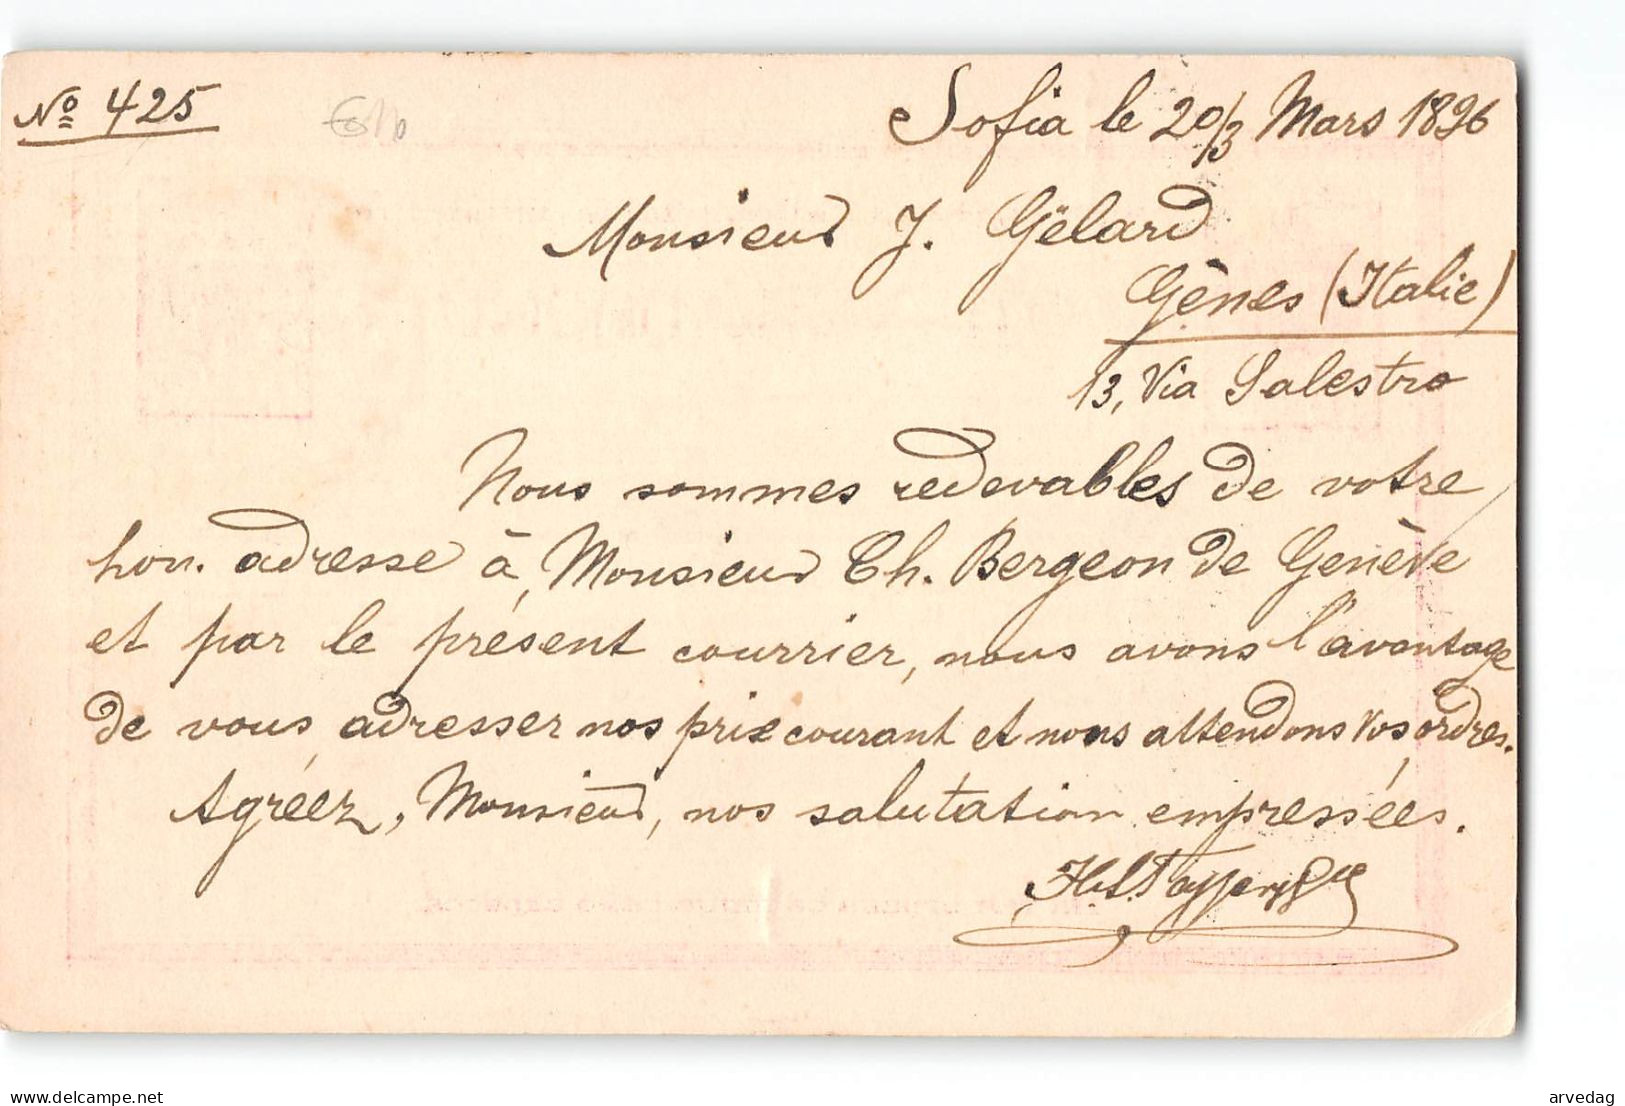 Nº 425
Sofia le 20/3 Mars 1896
Monsieur J. Gëlard
Gênes (Italie)
13, Via Galestro
Nous sommes redevables de votre
hon. adresse à, Monsieur Ch. Bergeon de Genève
et par le présent courrier, nous avons l'avantage
de vous adresser nos prix courant et nous attendons vos ordres.
Agréez, Monsieur, nos salutation empressées.
delcampe.net
arvedag